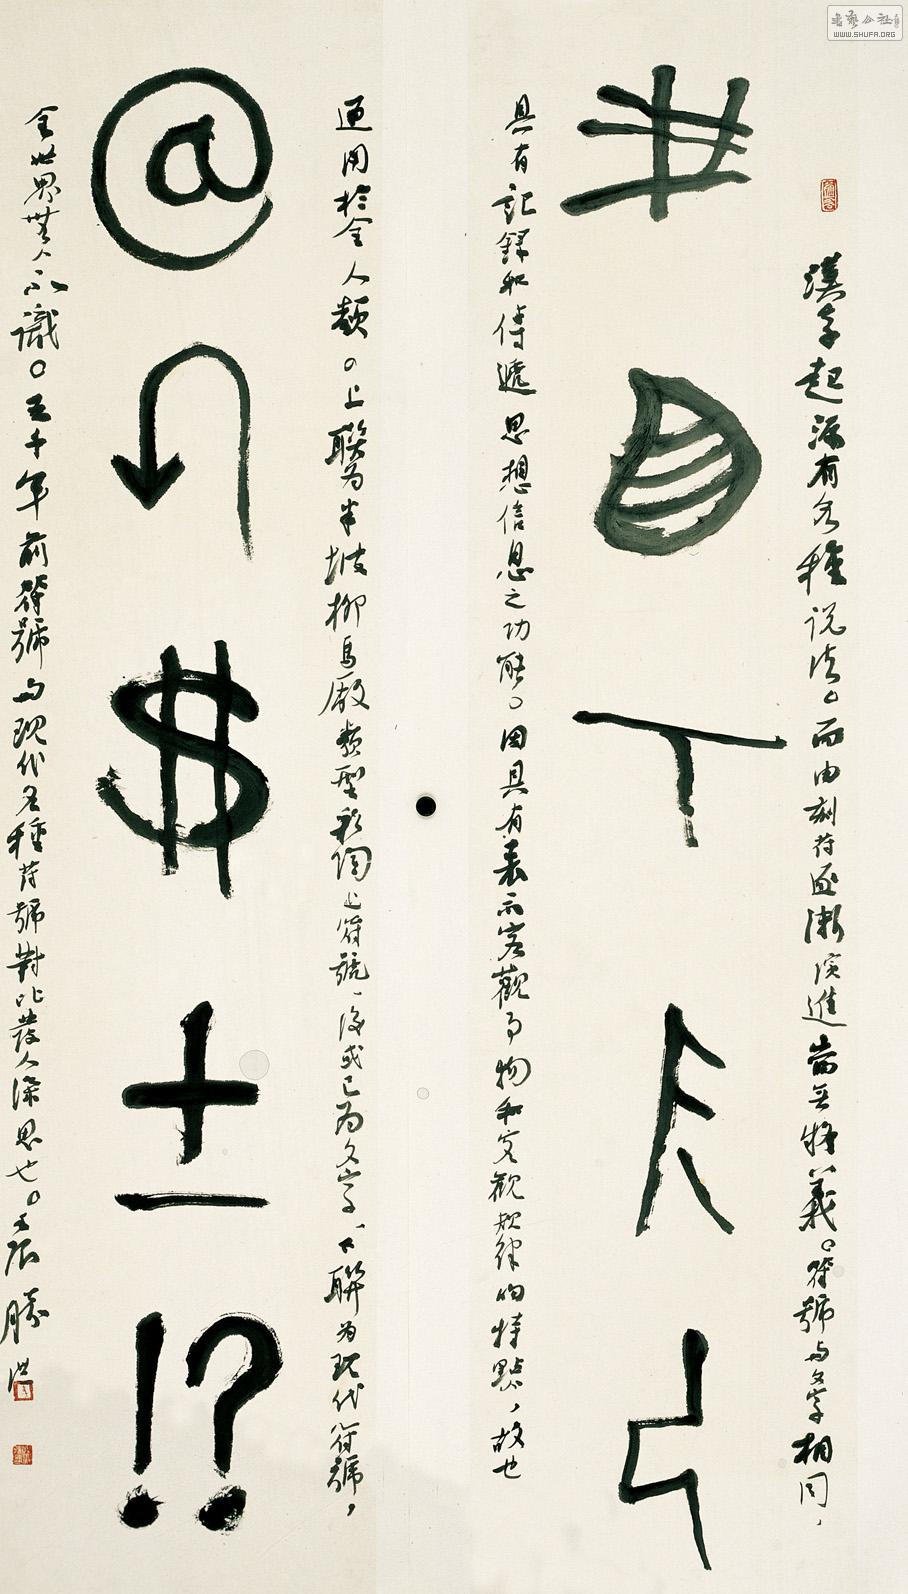 漢字起源有多種說法。而由刻符逐漸演進當無疑義。符號與文字相同，
具有記錄和傳遞思想信息之功能。因具有表示客觀事物和客觀規律的特點，故也
通用於全人類。上聯為半坡柳馬廠類型彩陶上符號、後或已為文字、下聯為現代符號，
@
$
±
!?
全世界無人不識。五千年前符號與現代各種符號對比發人深思也。
WWW.SHUFA.ORG